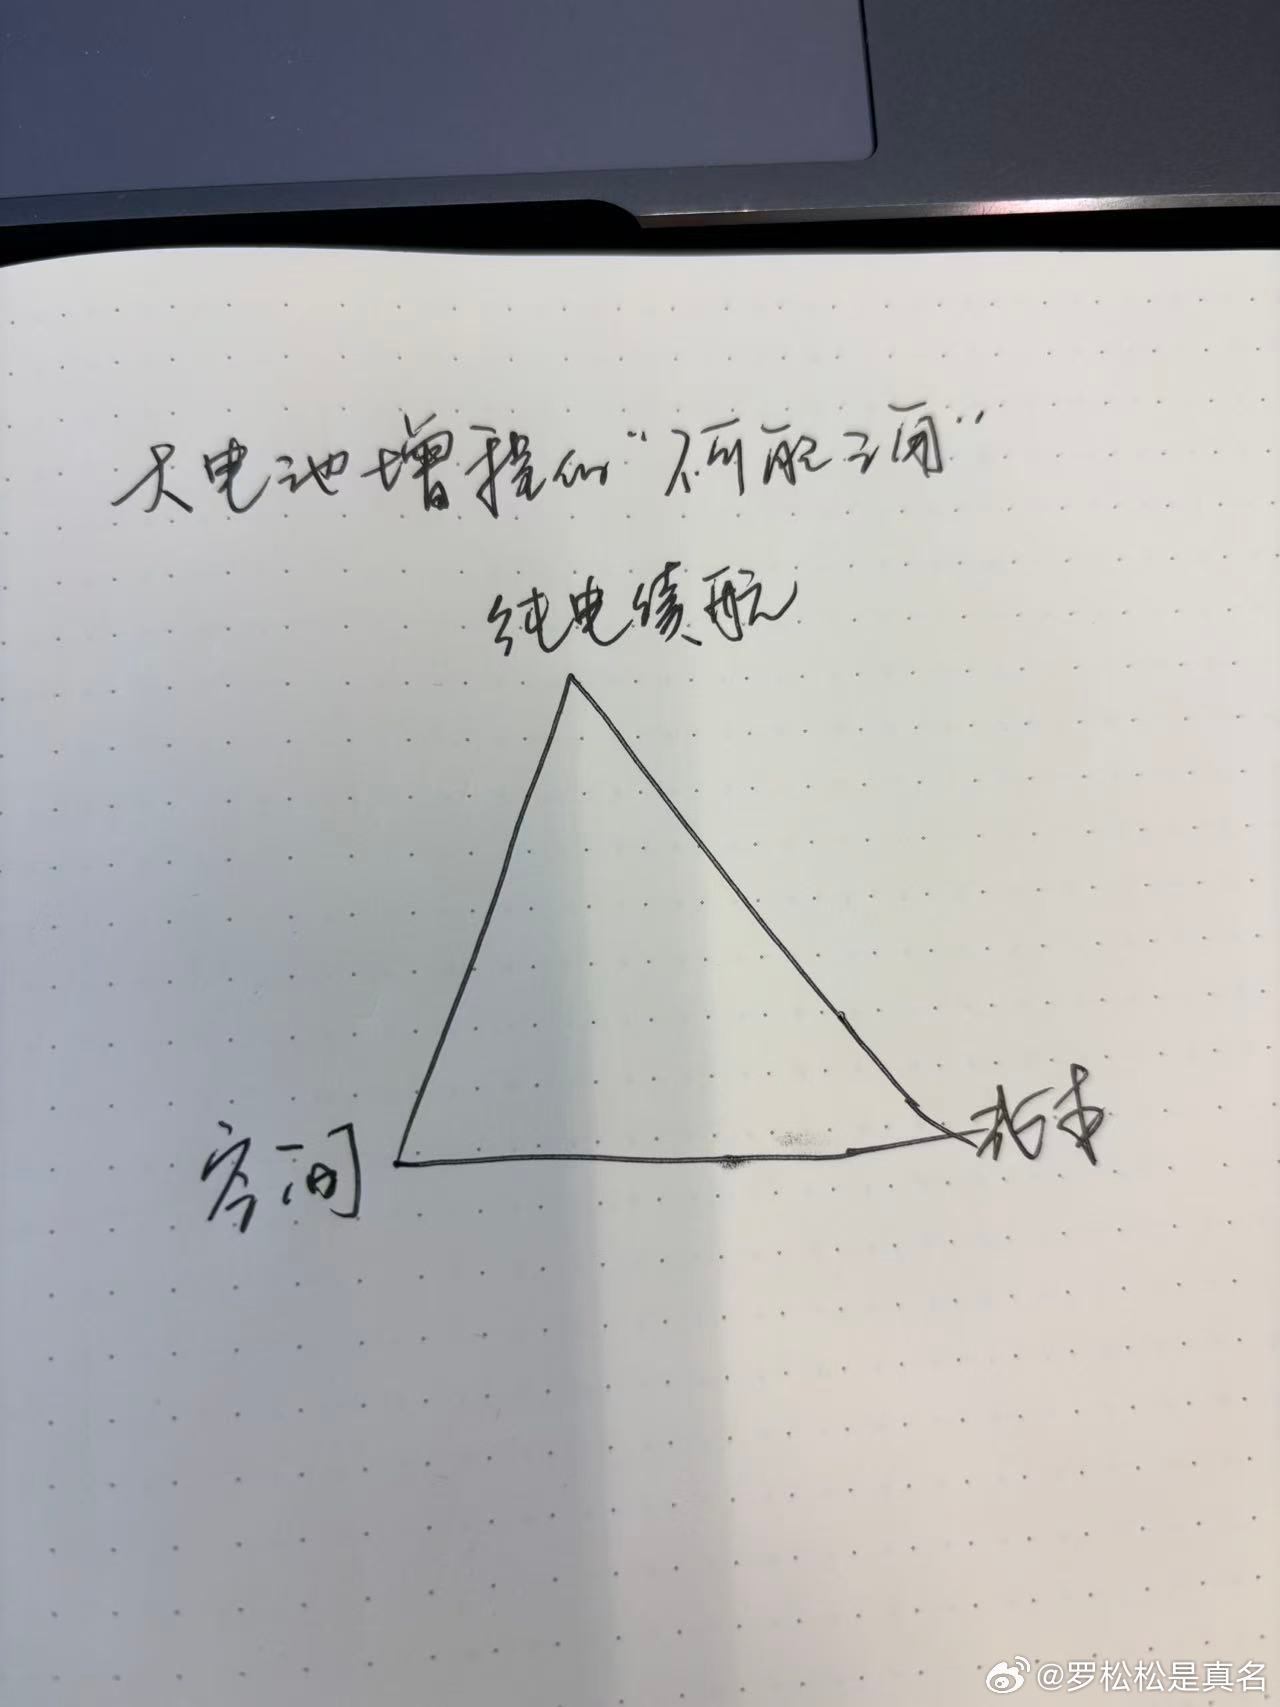 大电池增程的“不可能三角”
纯电续航
空间
成本
@罗松松是真名